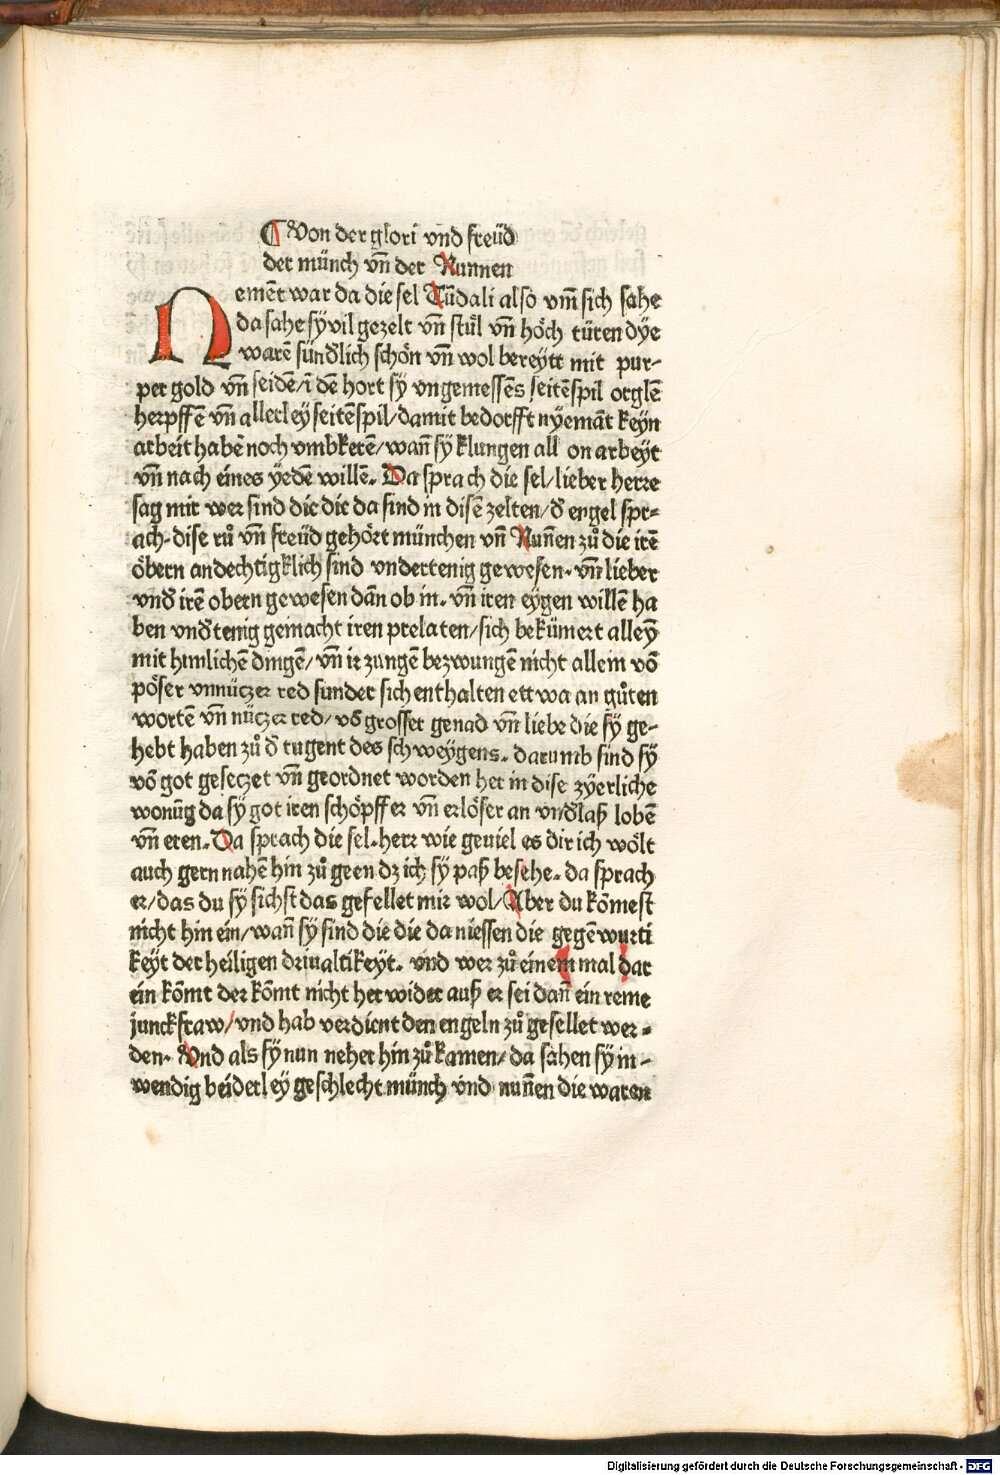 ¶ Von der glori vnd freüd
der münch vn̄ der Nunnen
Nemēt war da die sel Tūdali also vm̄ sich sahe
da sahe sy vil gezelt vn̄ stül vn̄ höch türen dye
warē sünđlich schön vn̄ wol bereytt mit pur-
per gold vn̄ seidē/ī dē hort sy vngemessēs seitēspil orglē
herpffē vn̄ allerley seitēspil/damit bedorfft nyemāt keyn
arbeit habē noch vmbkerē/wan̄ sy klungen all on arbeyt
vn̄ nach eines yedē willē. Da sprach die sel/lieber herre
sag mir wer sind die die da sind in disē zelten/đ engel spr-
ach. dise rů vn̄ freüd gehört münchen vn̄ Nun̄en zů die irē
öbern andechtigklich sind vndertenig gewesen. vn̄ lieber
vnđ irē obern gewesen dān ob in. vn̄ iren eygen willē ha
ben vnđtenig gemacht iren prelaten/sich bekümert alleȳ
mit himlichē dingē/vn̄ ir zungē bezwungē nicht allein vō
pöser vnnüczer red sunder sich enthalten ettwa an gůten
wortē vn̄ nüczer red/vō grosser genad vn̄ liebe die sy ge-
hebt haben zů đ tugent des schweygens. darumb sind sy
vō got geseczet vn̄ geordnet worden her in dise zyerliche
wonūg da sy got iren schöpffer vn̄ erlöser an vnđlaß lobē
vn̄ eren. Da sprach die sel. herr wie geuiel es dir ich wölt
auch gern nahē hin zů geen dz ich sy paß besehe. da sprach
er/das du sy sichst das gefellet mir wol/Aber du kōmest
nicht hin ein/wan̄ sy sind die die da niessen die gegēwurti
keyt der heiligen driualtikeyt. vnd wer zů einem mal dar
ein kōmt der kōmt nicht her wider auß er sei dan̄ ein reine
junckfraw/vnd hab verdient den engeln zů gesellet wer-
den. Vnd als sy nun neher hin zů kamen/da sahen sy in-
wendig beiderley geschlecht münch vnd nun̄en die waren
Digitalisierung gefördert durch die Deutsche Forschungsgemeinschaft - DFG